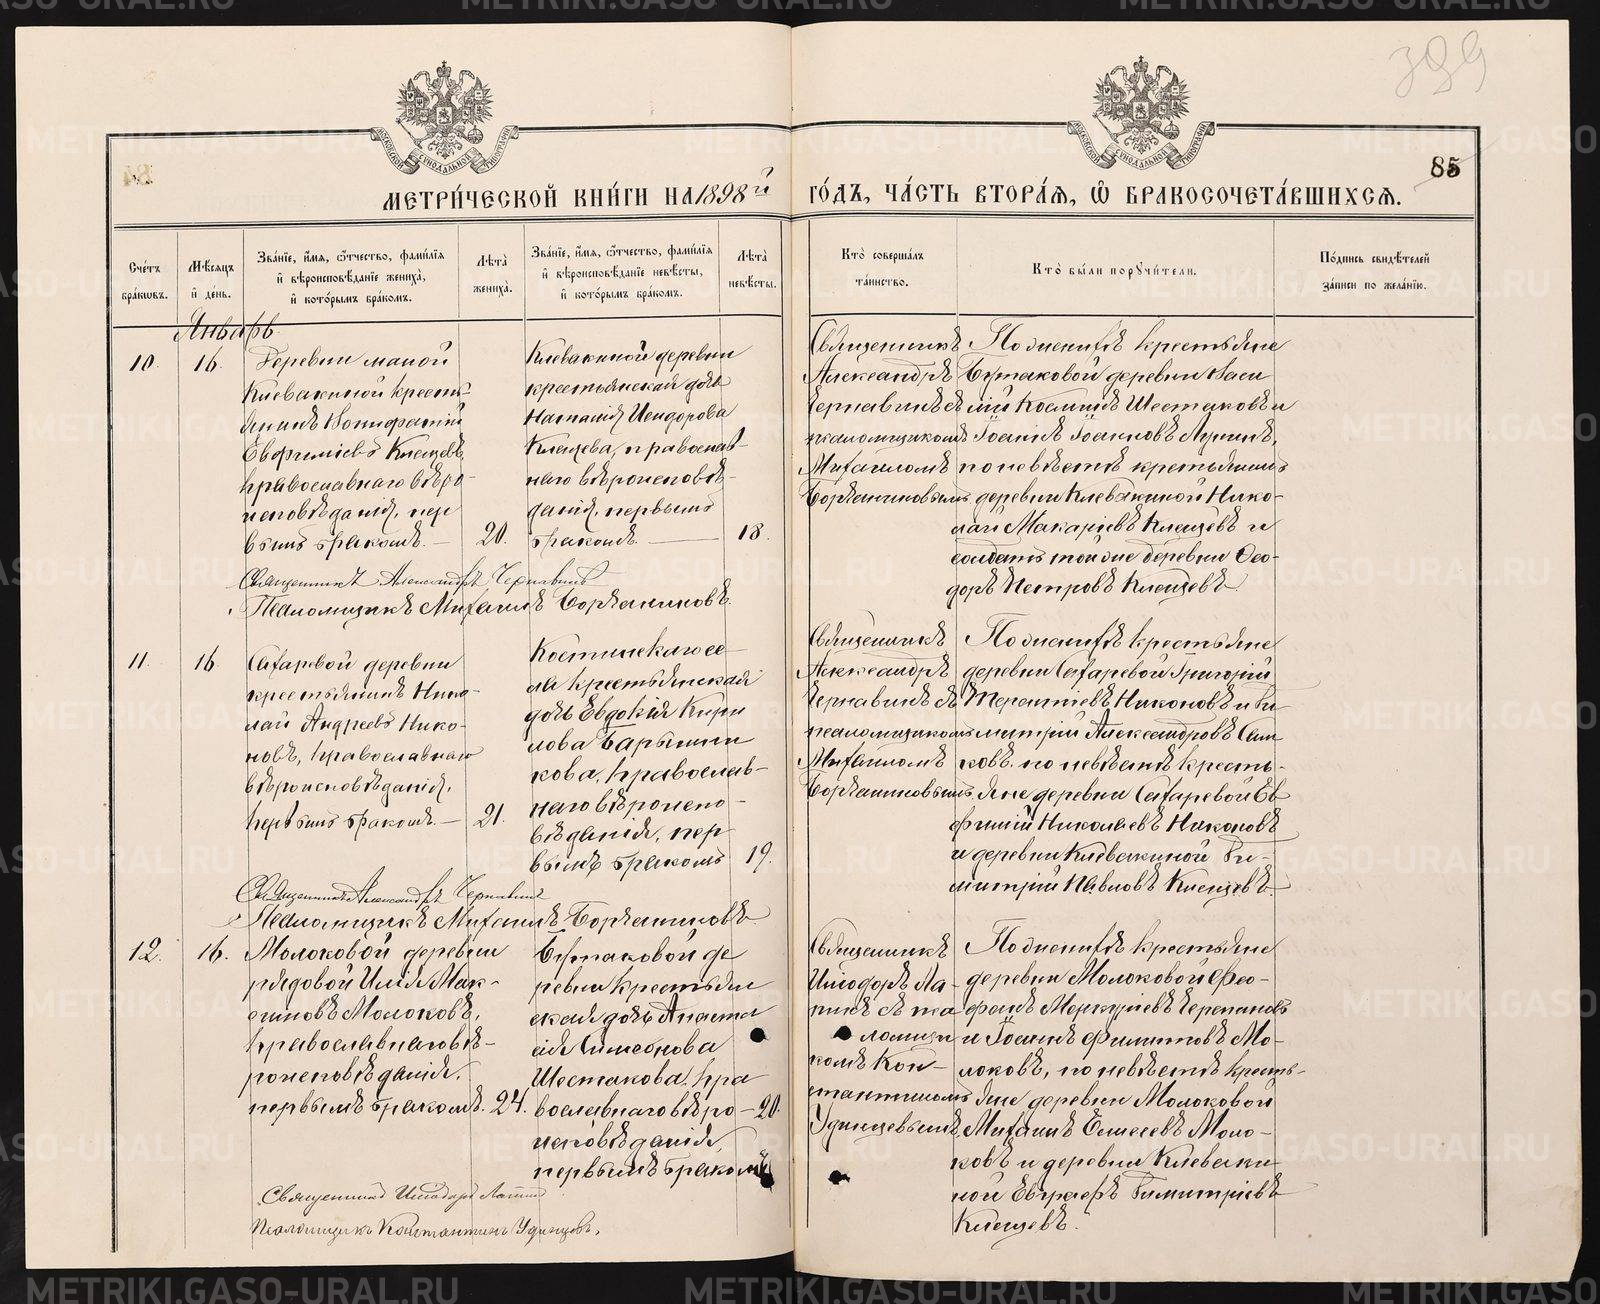 399
85
МЕТРИ́ЧЕСКОЙ КНИ́ГИ НА 1898й ГО́ДЪ, ЧА́СТЬ ВТОРА́Я, Ѡ БРАКОСОЧЕТА́ВШИХСЯ.
Сче́тъ бра́кѡвъ.
Мѣ́сяцъ и де́нь.
Зва́нїе, и́мя, ѻ́тчество, фами́лїя и вѣроисповѣ́данїе жениха̀, и кото́рымъ бра́комъ.
Лѣ́та жениха̀.
Зва́нїе, и́мя, ѻ́тчество, фами́лїя и вѣроисповѣ́данїе невѣ́сты, и кото́рымъ бра́комъ.
Лѣ́та невѣ́сты.
Кто̀ соверша́лъ та́инство.
Кто̀ бы́ли порꙋчи́тели.
По́дпись свидѣ́телей за́писи по жела́нїю.
Январь
10.
16.
Деревни малой
Клевакиной кресть-
янинъ Вонифатій
Евфиміевъ Клещевъ,
православнаго вѣро-
исповѣданія, пер
вымъ бракомъ. —
20.
Клевакиной деревни
крестьянская дочь
Наталія Исидорова
Клещева, православ-
наго вѣроисповѣ-
данія, первымъ
бракомъ. —
18.
Священникъ
Александръ
Чернавинъ съ
псаломщикомъ
Михаиломъ
Боръчаниновымъ
По женихѣ крестьяне
Бучтаковой деревни Васи
лій Космичъ Шестаковъ и
Іоаннъ Іоанновъ
по невѣстѣ крестьянинъ
деревни Клевакиной Нико-
лай Макаріевъ Клещевъ и
солдатъ той же деревни Ѳео-
доръ Петровъ Клещевъ.
Священникъ Александръ Чернавинъ
Псаломщикъ Михаилъ Боръчаниновъ.
11.
16.
Сахаровой деревни
крестьянинъ Нико-
лай Андреевъ Нико-
новъ, православнаго
вѣроисповѣданія,
первымъ бракомъ. —
21.
Костинскаго се-
ла крестьянская
дочь Евдокія Кири
лова Барышни
кова, православ-
наго вѣроиспо-
вѣданія, пер
вымъ бракомъ
19.
Священникъ
Александръ
Чернавинъ съ
псаломщикомъ
Михаиломъ
Боръчаниновымъ
По женихѣ крестьяне
деревни Сахаревой Григорій
Терентіевъ Никоновъ и Ди-
митрій Александровъ
ковъ. по невѣстѣ кресть-
яне деревни Сахаревой Ев
фимій Николаевъ Никоновъ
и деревни Клевакиной Ди-
митрій Павловъ Клещевъ.
Священникъ Александръ Чернавинъ
Псаломщикъ Михаилъ Боръчаниновъ
12.
16.
Молоковой деревни
рядовой Илія Мак-
симовъ Молоковъ,
православнаго вѣ-
роисповѣданія,
первымъ бракомъ.
24.
Бучтаковой де
ревни крестьян
ская дочь Анаста
сія Симеонова
Шестакова, пра
вославнаго вѣро-
исповѣданія,
первымъ бракомъ
20.
Священникъ
Исидоръ Ла-
пинъ съ пса
ломщи
комъ Кон-
стантиномъ
Удинцевымъ
По женихѣ крестьяне
деревни Молоковой Ѳео-
фанъ Меркуріевъ Черепановъ
и Іоаннъ Филипповъ Мо-
локовъ, по невѣстѣ кресть-
яне деревни Молоковой
Михаилъ Елисеевъ Моло-
ковъ и деревни Клеваки
ной Евграфъ Димитріевъ
Клещевъ.
Священникъ Исидоръ Лапинъ
Псаломщикъ Константинъ Удинцевъ.
METRIKI.GASO-URAL.RU